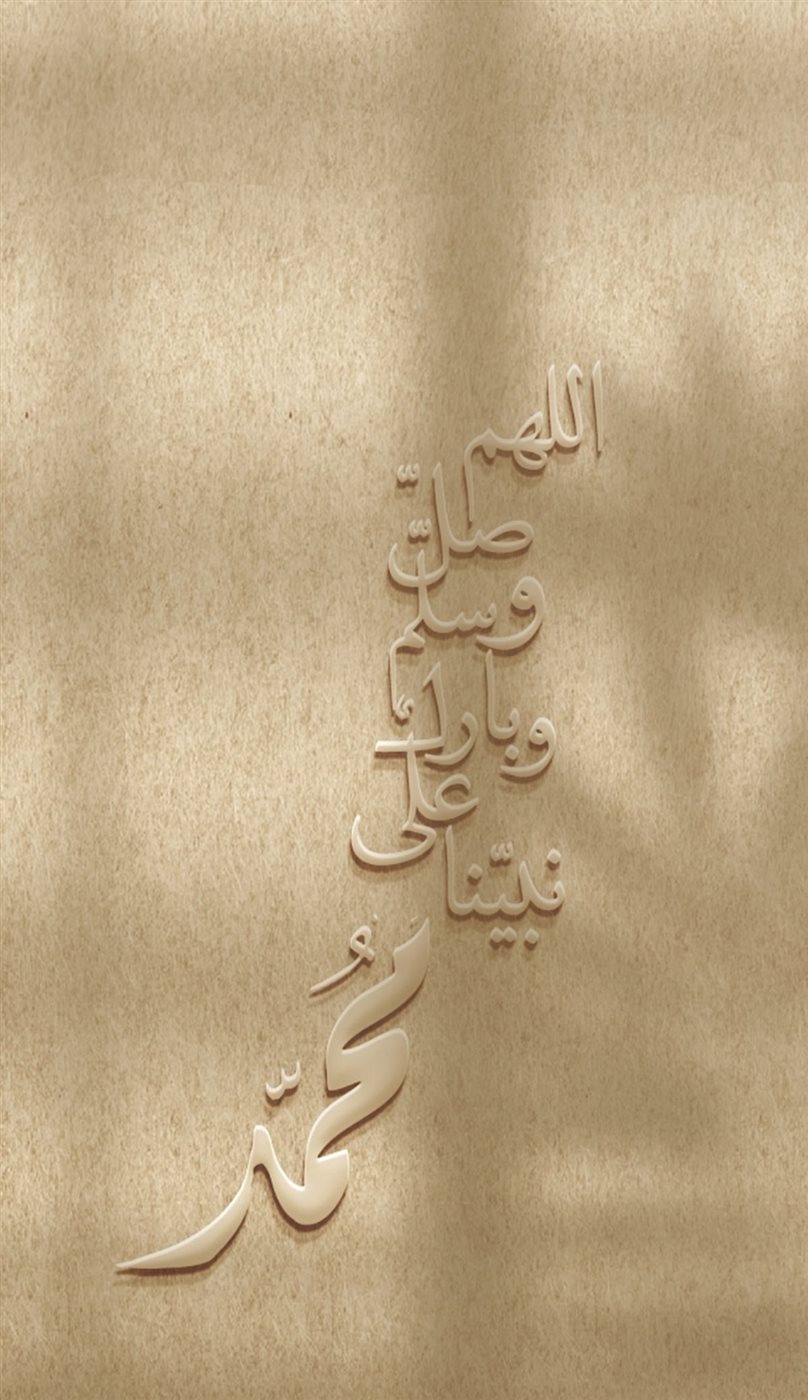 اللهم
صلّ
وسلم
وبارك
على
نبيّنا
مُحمّد